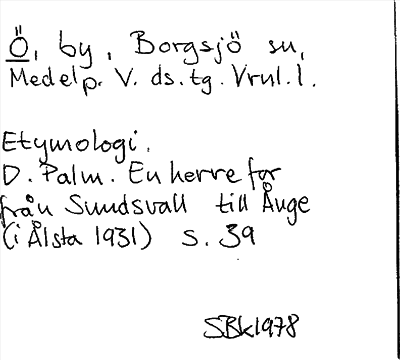 Ö, by, Borgsjö sn,
Medelp. V. ds. tg.
Etymologi.
D. Palm. En herre for
från Sundsvall till Ånge
(i Ålsta 1931) s. 39
SBk1978